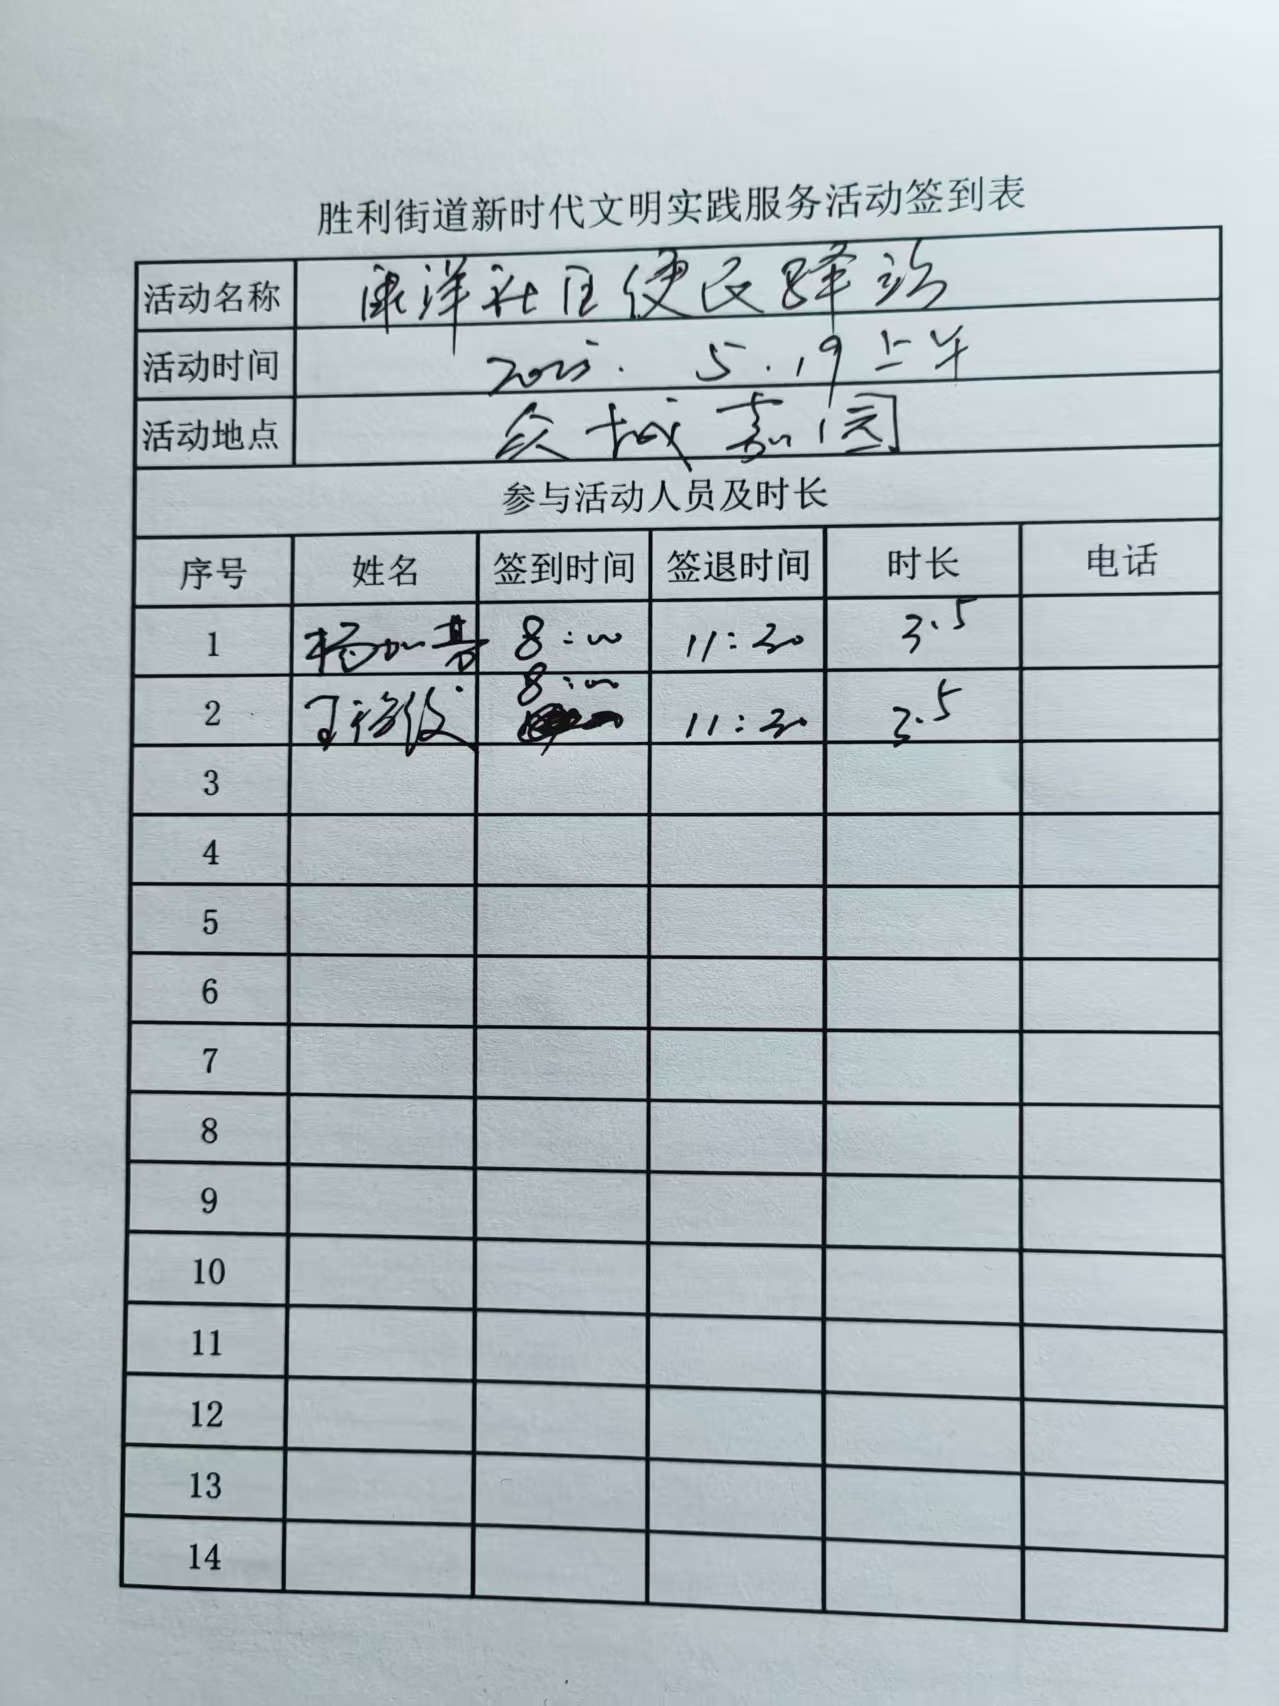 胜利街道新时代文明实践服务活动签到表
活动名称 康洋社区便民驿站
活动时间 2025. 5.19上午
活动地点 众城嘉园
参与活动人员及时长
序号 姓名 签到时间 签退时间 时长 电话
1 杨 8:00 11:30 3.5
2 王 8:00 11:30 3.5
3
4
5
6
7
8
9
10
11
12
13
14